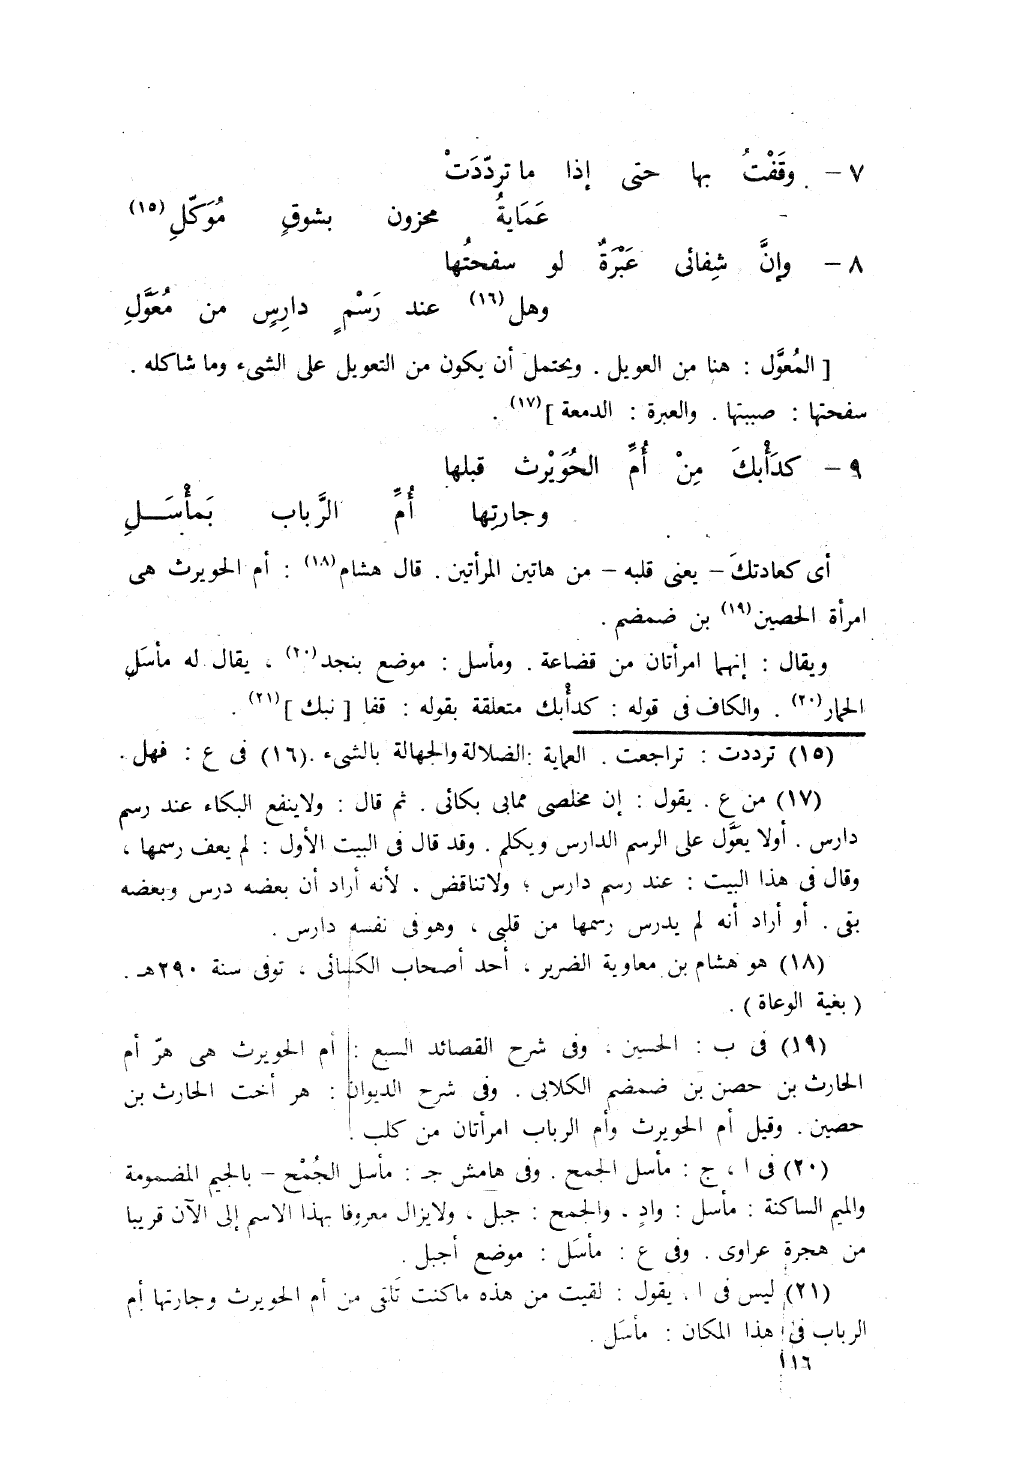 ٧ – وقَفْتُ بها حتى إذا ما تردّدَتْ
عَمَايةُ محزون بشوقٍ مُوَكّلِ (١٥)
٨ – وإنَّ شِفائى عَبْرَةٌ لو سفحتُها
وهل (١٦) عند رَسْمٍ دارِسٍ من مُعَوَّلِ
[ المُعوَّل : هنا من العويل . ويحتمل أن يكون من التعويل على الشىء وما شاكله .
سفحتها : صببتها . والعبرة : الدمعة ] (١٧) .
٩ – كدَأْبكَ مِنْ أُمِّ الحُوَيْرث قبلها
وجارتِها أُمِّ الرَّباب بَمأْسَــلِ
أى كعادتكَ – يعنى قلبه – من هاتين المرأتين . قال هشام (١٨) : أم الحويرث هى
امرأة الحصين (١٩) بن ضمضم .
ويقال : إنهما امرأتان من قضاعة . ومأسل : موضع بنجد (٢٠) ، يقال له مأسَلِ
الحمار (٢٠) . والكاف فى قوله : كدأْبك متعلقة بقوله : قفا [ نبك ] (٢١) .
(١٥) ترددت : تراجعت . العماية : الضلالة والجهالة بالشىء . (١٦) فى ع : فهل .
(١٧) من ع . يقول : إن مخلصى ممابى بكائى . ثم قال : ولاينفع البكاء عند رسم
دارس . أولا يعَوَّل على الرسم الدارس ويكلم . وقد قال فى البيت الأول : لم يعف رسمها ،
وقال فى هذا البيت : عند رسم دارس ؛ ولاتناقض . لأنه أراد أن بعضه درس وبعضه
بقى . أو أراد أنه لم يدرس رسمها من قلبى ، وهو فى نفسه دارس .
(١٨) هو هشام بن معاوية الضرير ، أحد أصحاب الكسائى ، توفى سنة ٢٩٠هـ .
( بغية الوعاة ) .
(١٩) فى ب : الحسين ، وفى شرح القصائد السبع : أم الحويرث هى هرّ أم
الحارث بن حصن بن ضمضم الكلابى . وفى شرح الديوان : هر أخت الحارث بن
حصين . وقيل أم الحويرث وأم الرباب امرأتان من كلب .
(٢٠) فى ا ، ج : مأسل الجمح . وفى هامش جـ : مأسل الجُمْح – بالجيم المضمومة
والميم الساكنة : مأسل : وادٍ . والجمح : جبل ، ولايزال معروفا بهذا الاسم إلى الآن قريبا
من هجرة عراوى . وفى ع : مأسَل : موضع أجبل .
(٢١) ليس فى ا . يقول : لقيت من هذه ماكنت تَلقى من أم الحويرث وجارتها أم
الرباب فى هذا المكان : مأسَل .
١١٦